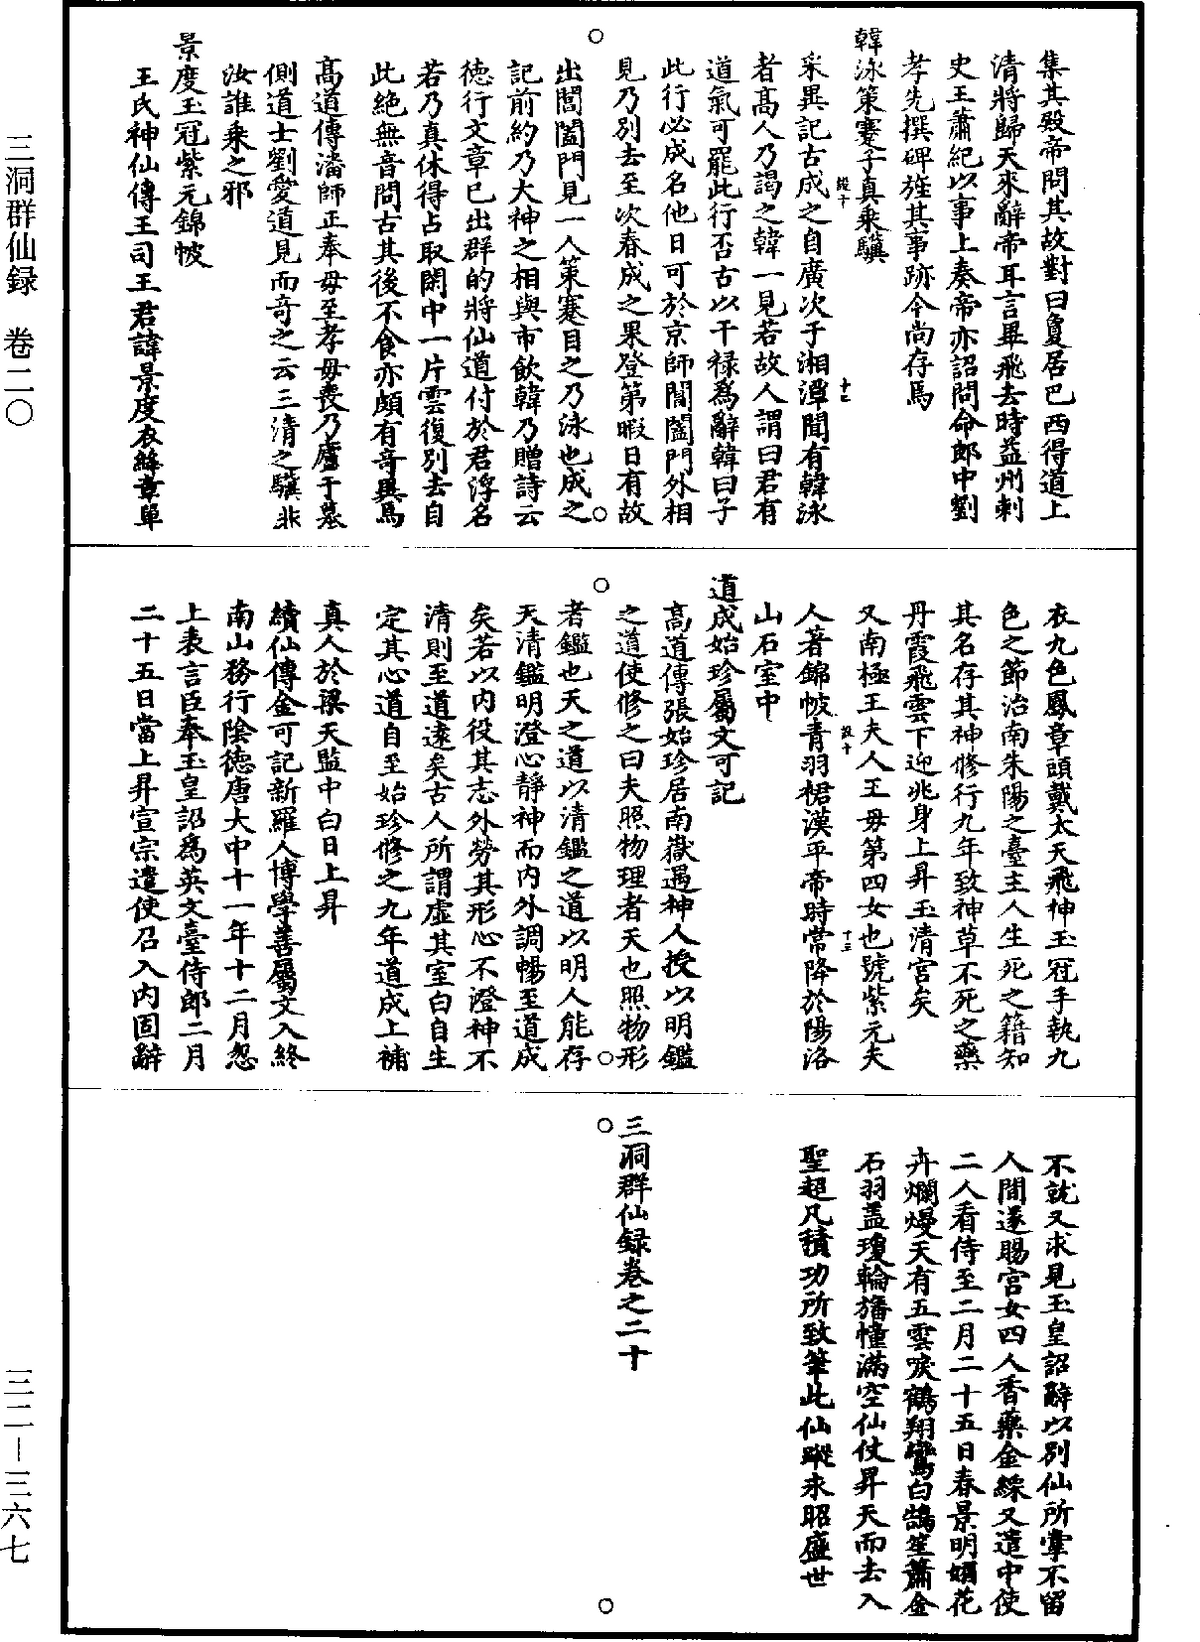 集其殿帝問其故對曰夐居巴西得道上
清將歸天來辭帝耳言畢飛去時益州刺
史王蕭紀以事上奏帝亦詔問命郎中劉
孝先撰碑旌其事跡今尚存焉
韓泳策蹇子真乘驥
采異記古成之自廣次于湘潭聞有韓泳
者高人乃謁之韓一見若故人謂曰君有
道氣可罷此行否古以干祿爲辭韓曰子
此行必成名他日可於京師閶闔門外相
見乃別去至次春成之果登第暇日有故
出閶闔門見一人策蹇目之乃泳也成之
記前約乃大神之相與市飲韓乃贈詩云
德行文章已出群的將仙道付於君浮名
若乃真休得占取閑中一片雲復別去自
此絕無音問古其後不食亦頗有奇異焉
高道傳潘師正奉母至孝母喪乃廬于墓
側道士劉愛道見而奇之云三清之驥非
汝誰乘之邪
景度玉冠紫元錦帔
王氏神仙傳王司王君諱景度衣絳章單
衣九色鳳章頭戴太天飛神玉冠手執九
色之節治南朱陽之臺主人生死之籍知
其名存其神修行九年致神草不死之藥
丹霞飛雲下迎兆身上昇玉清宮矣
又南極王夫人王母第四女也號紫元夫
人著錦帔青羽裙漢平帝時常降於陽洛
山石室中
道成始珍屬文可記
高道傳張始珍居南嶽遇神人授以明鑑
之道使修之曰夫照物理者天也照物形
者鑑也天之道以清鑑之道以明人能存
天清鑑明澄心靜神而內外調暢至道成
矣若以內役其志外勞其形心不澄神不
清則至道遠矣古人所謂虛其室白自生
定其心道自至始珍修之九年道成上補
真人於梁天監中白日上昇
續仙傳金可記新羅人博學善屬文入終
南山務行陰德唐大中十一年十二月忽
上表言臣奉玉皇詔爲英文臺侍郎二月
二十五日當上昇宣宗遣使召入內固辭
不就又求見玉皇詔辭以別仙所掌不留
人間遂賜宮女四人香藥金綵又遣中使
二人看侍至二月二十五日春景明媚花
卉爛熳天有五雲唳鶴翔鸞白鵠笙簫金
石羽蓋瓊輪旛幢滿空仙仗昇天而去入
聖超凡積功所致筆此仙蹤永昭盛世
三洞群仙録卷之二十
三洞群仙録　卷二〇
三二—三六七